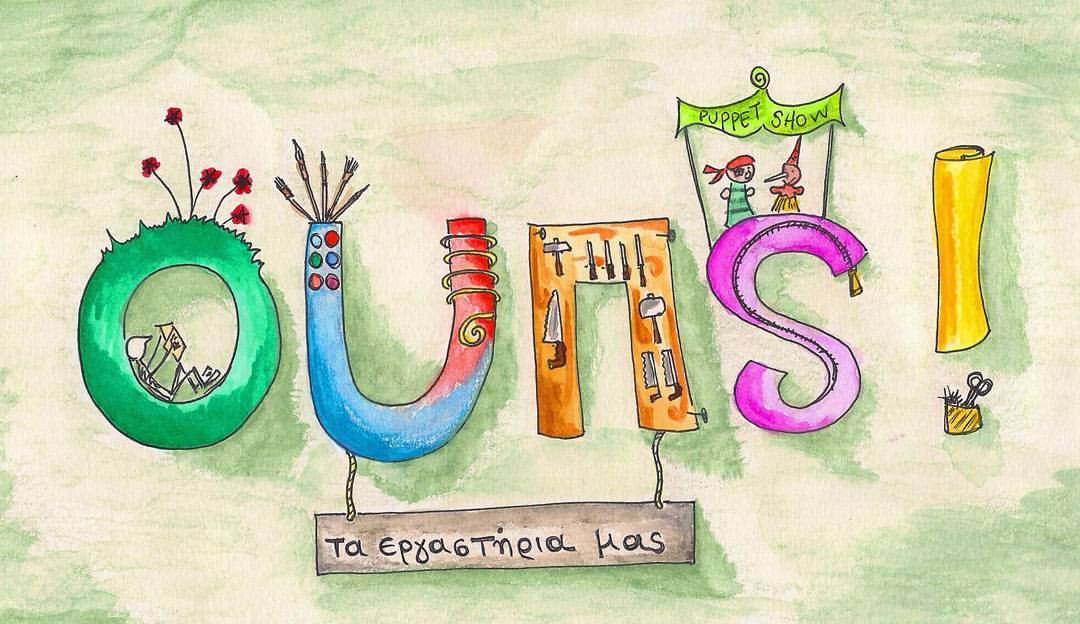 PUPPET SHOW
OUΠS!
τα εργαστήρια μας